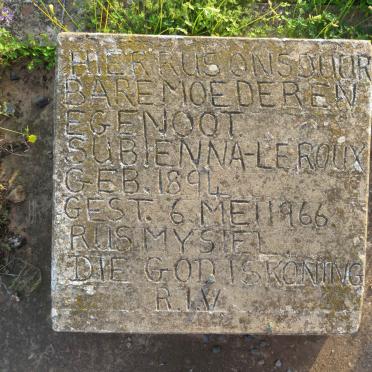 HIER RUS ONS DUUR
BARE MOEDER EN
EGENOOT
SUBIENNA-LE ROUX
GEB. 1894
GEST. 6 MEI 1966.
RUS MY SIEL
DIE GOD IS KONING
R.I.V.